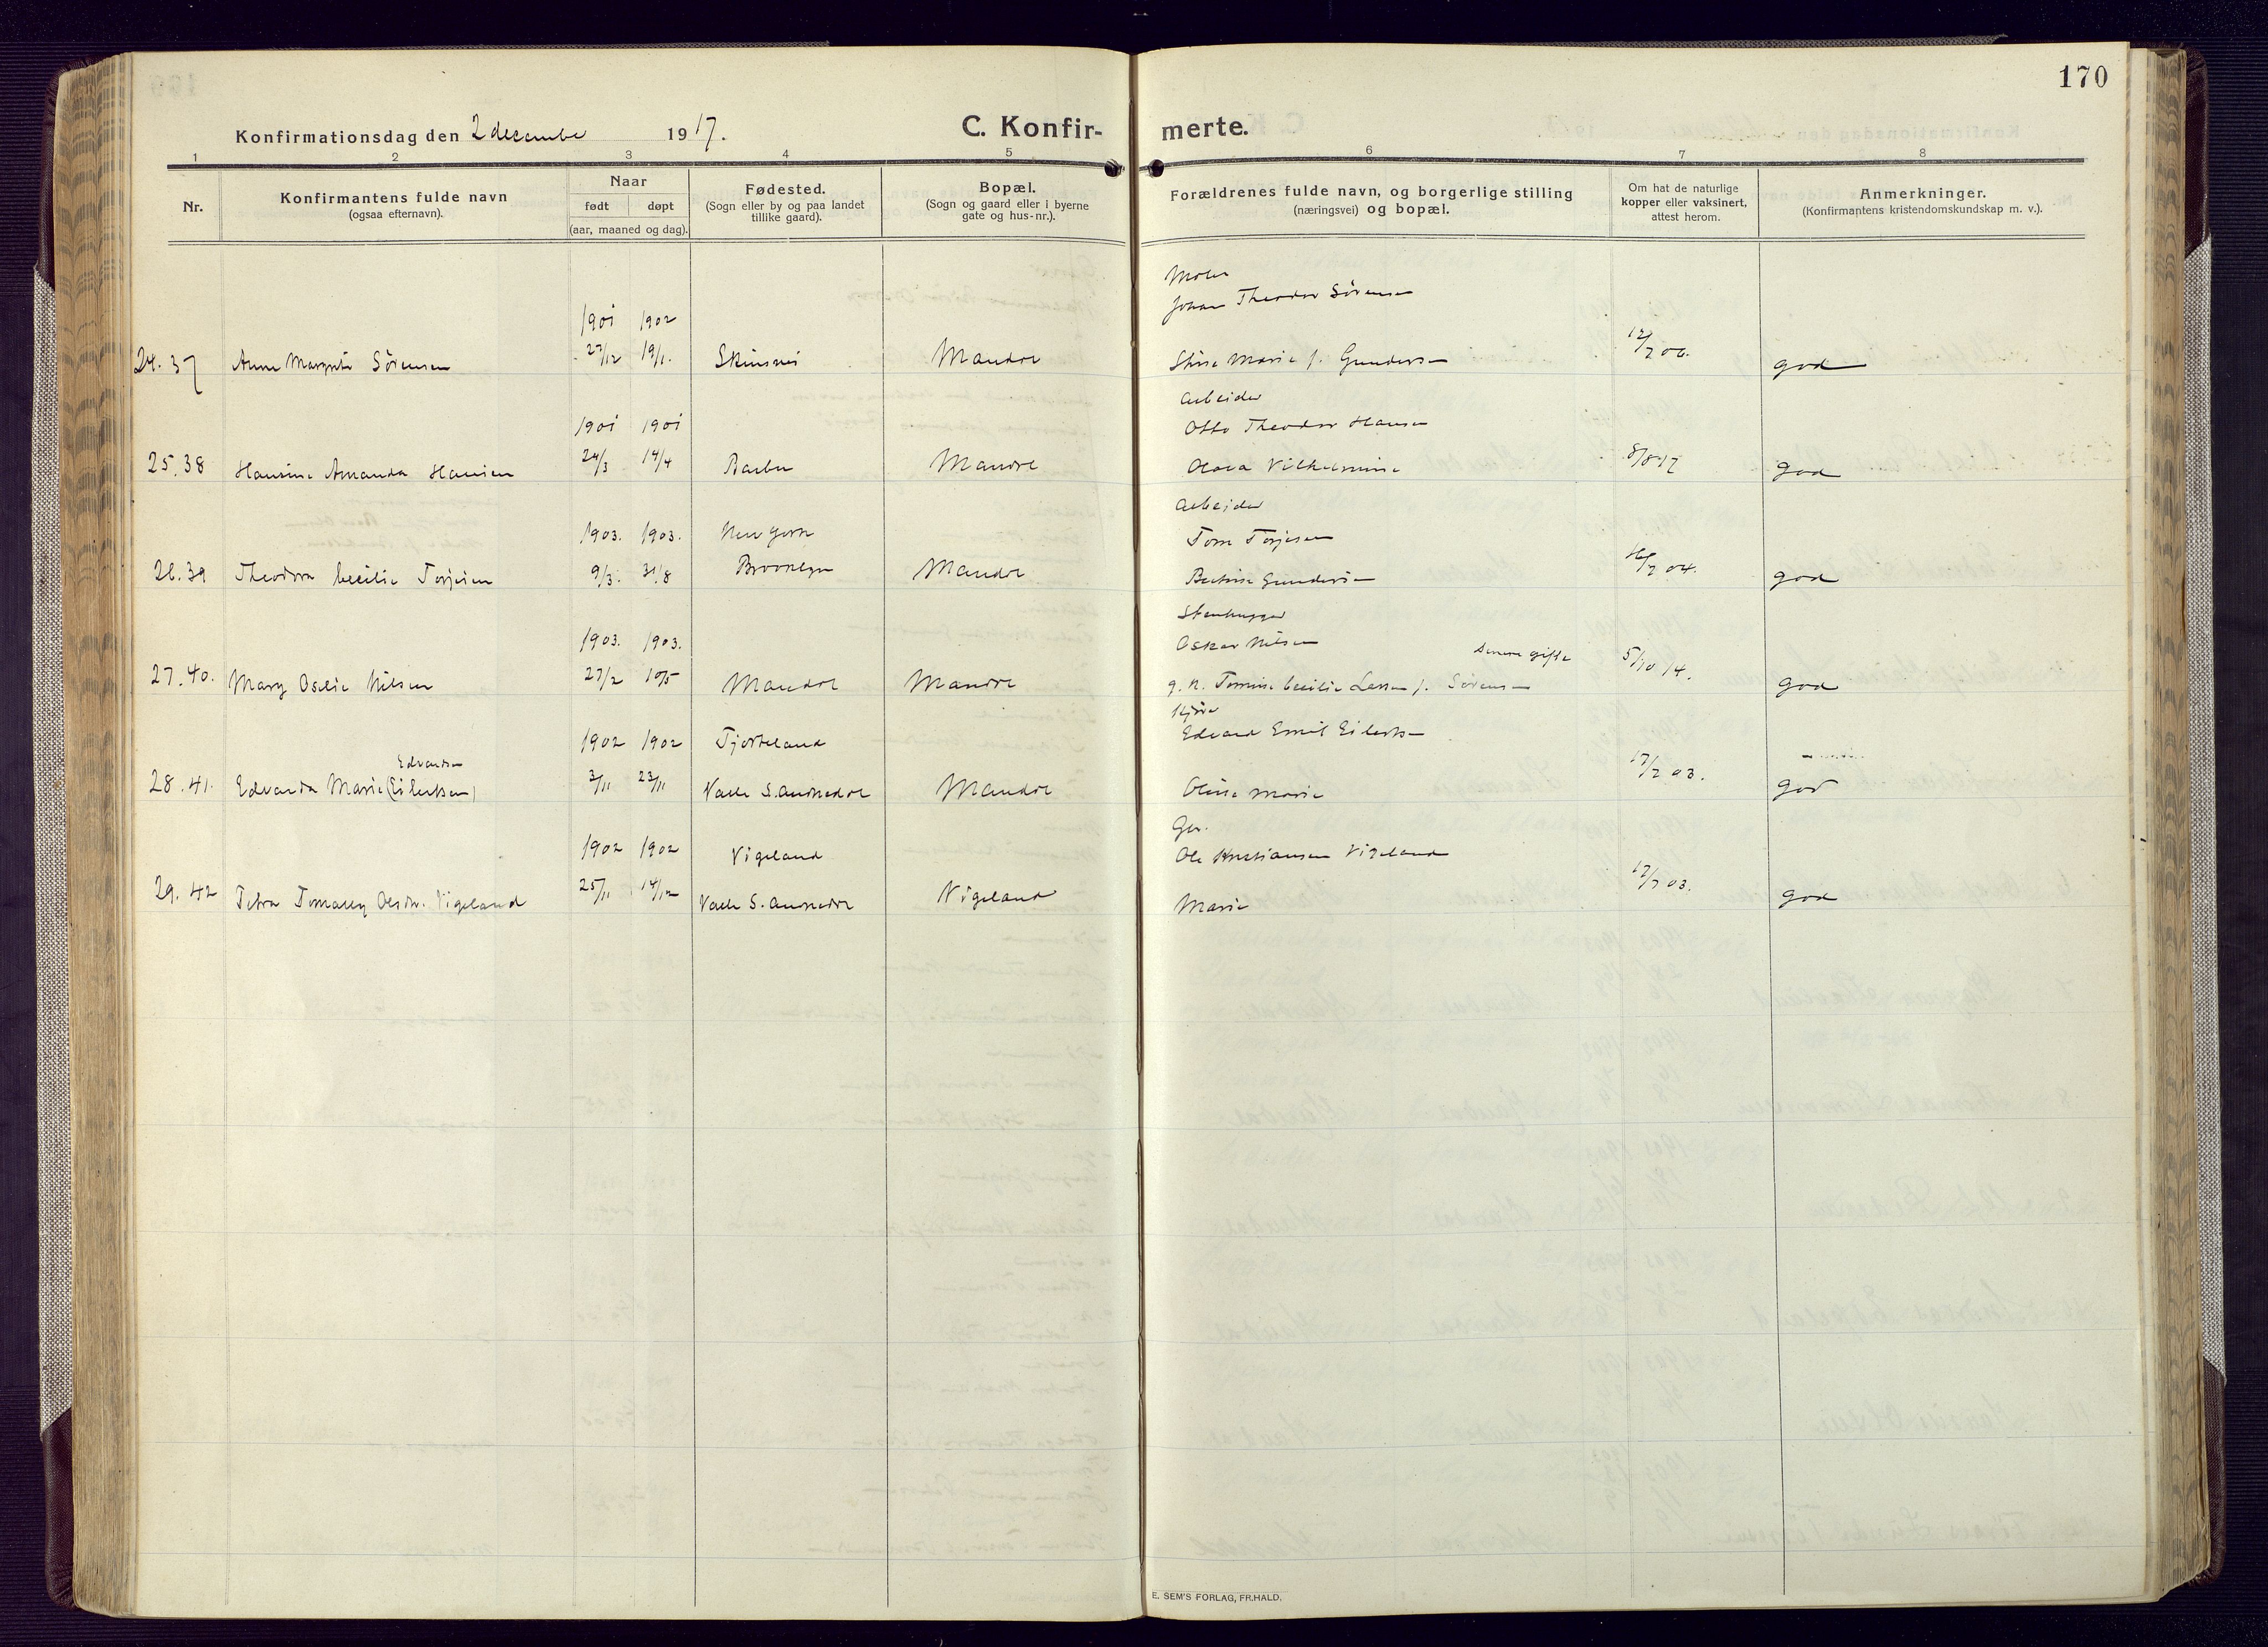 170
Konfirmationsdag den 2 decembe 1917.
C. Konfir-
merte.
1 2 3 4 5 6 7 8
Nr.
Konfirmantens fulde navn
(ogsaa efternavn).
Naar
født døpt
(aar, maaned og dag).
Fødested.
(Sogn eller by og paa landet
tillike gaard).
Bopæl.
(Sogn og gaard eller i byerne
gate og hus-nr.).
Forældrenes fulde navn, og borgerlige stilling
(næringsvei) og bopæl.
Om hat de naturlige
kopper eller vaksinert,
attest herom.
Anmerkninger.
(Konfirmantens kristendomskundskap m. v.).
Maler
Johan Theodor Sörensen
1901 1902
24. 37 Anne Margrete Sörensen 27/12 19/1. Skinsnes Mandal
Marie f. Gundersen 12/7 06. god
Arbeider
Otto Theodor Hansen
1901 1901
25. 38 Hansine Amanda Hansen 24/3 14/4 Mandal
Olava Vilhelmine 8/8 17 god
Arbeider
Tom Torjesen
1903. 1903. New York
26. 39 Theodora Cecilie Torjesen 9/3. 31/8 Brooklyn Mandal
Gundersen 16/7 04. god
Stenhugger
Oskar Nilsen
Senere gift
1903. 1903.
27. 40. Mary Oselie Nilsen 27/2 10/5 Mandal Mandal
g. n. Tomine Cecilie Larsen f. Sörensen 5/10 14. god
Edvard Emil Eilertsen
1902 1902 Tjorteland
Edvardsen
28. 41. Edvarda Marie (Eilertsen) 3/11 23/11 Valle S. Audnedal Mandal
Oline Marie 17/7 03. god
Gbr.
Ole Kristiansen Vigeland
1902 1902 Vigeland
29. 42 Petra Tomally Olsdtr. Vigeland 25/11 14/12 Valle S. Audnedal Vigeland
Marie 17/7 03. god
E. SEM'S FORLAG, FR.HALD.